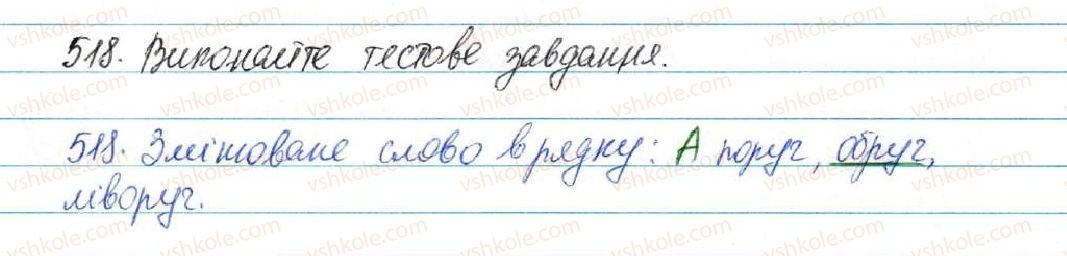 518. Виконайте тестове завдання.
518. Змішоване слово в рядку: А поруч, обруч,
ліворуч.